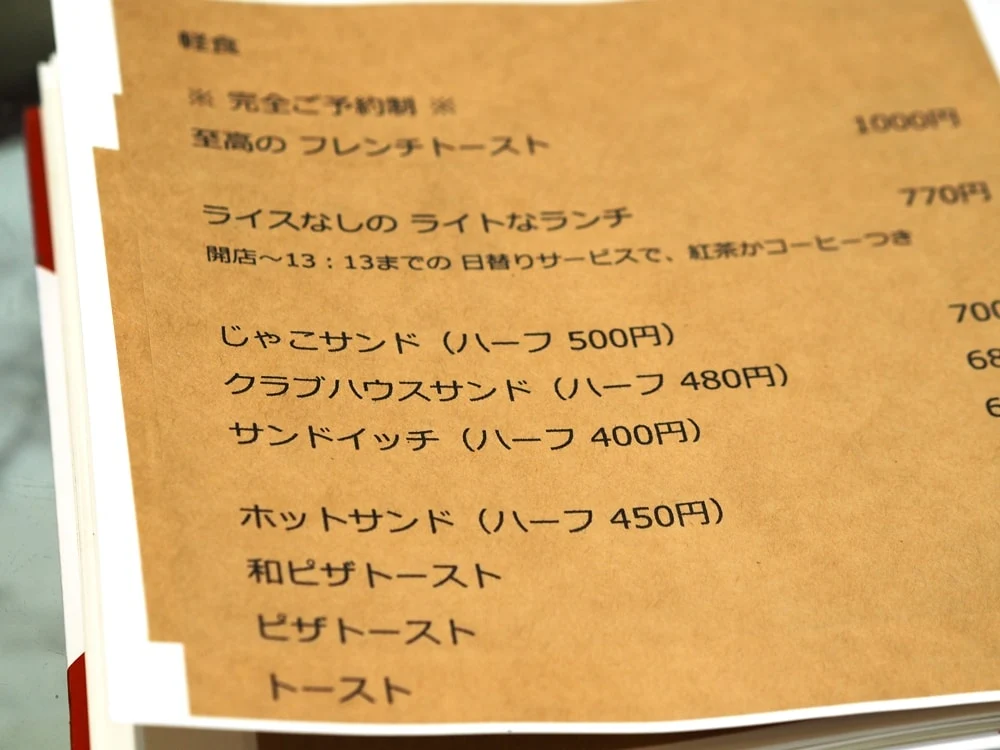 軽食
※ 完全ご予約制 ※
至高の フレンチトースト 1000円
ライスなしの ライトなランチ 770円
開店～13：13までの 日替りサービスで、紅茶かコーヒーつき
じゃこサンド（ハーフ 500円） 700
クラブハウスサンド（ハーフ 480円） 68
サンドイッチ（ハーフ 400円） 6
ホットサンド（ハーフ 450円）
和ピザトースト
ピザトースト
トースト